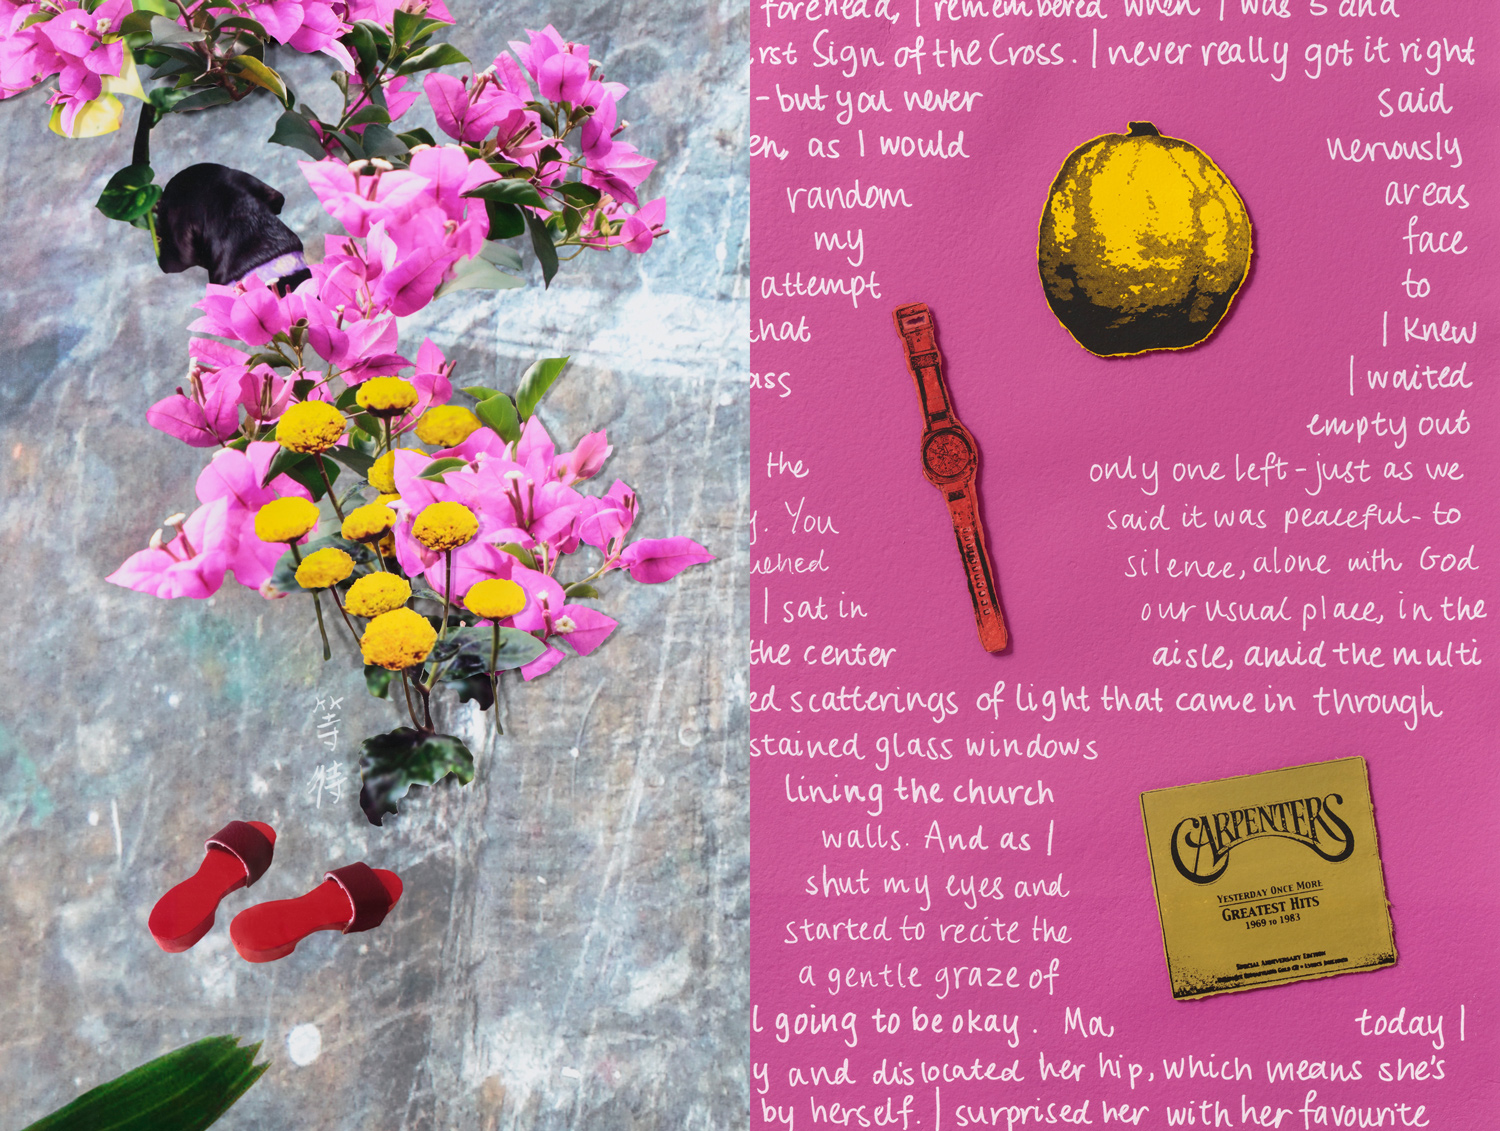 等
待
forehead, I remembered when I was 5 and
rst Sign of the Cross. I never really got it right
- but you never said
en, as I would nervously
random areas
my face
attempt to
that I knew
ass I waited
empty out
the only one left - just as we
y. You said it was peaceful - to
uened silence, alone with God
I sat in our usual place, in the
the center aisle, amid the multi
ed scatterings of light that came in through
stained glass windows
lining the church
walls. And as I
shut my eyes and
started to recite the
a gentle graze of
l going to be okay. Ma, today I
y and dislocated her hip, which means she's
by herself. I surprised her with her favourite
CARPENTERS
YESTERDAY ONCE MORE
GREATEST HITS
1969 TO 1983
SPECIAL ANNIVERSARY EDITION
GOLD CD • LYRICS INCLUDED